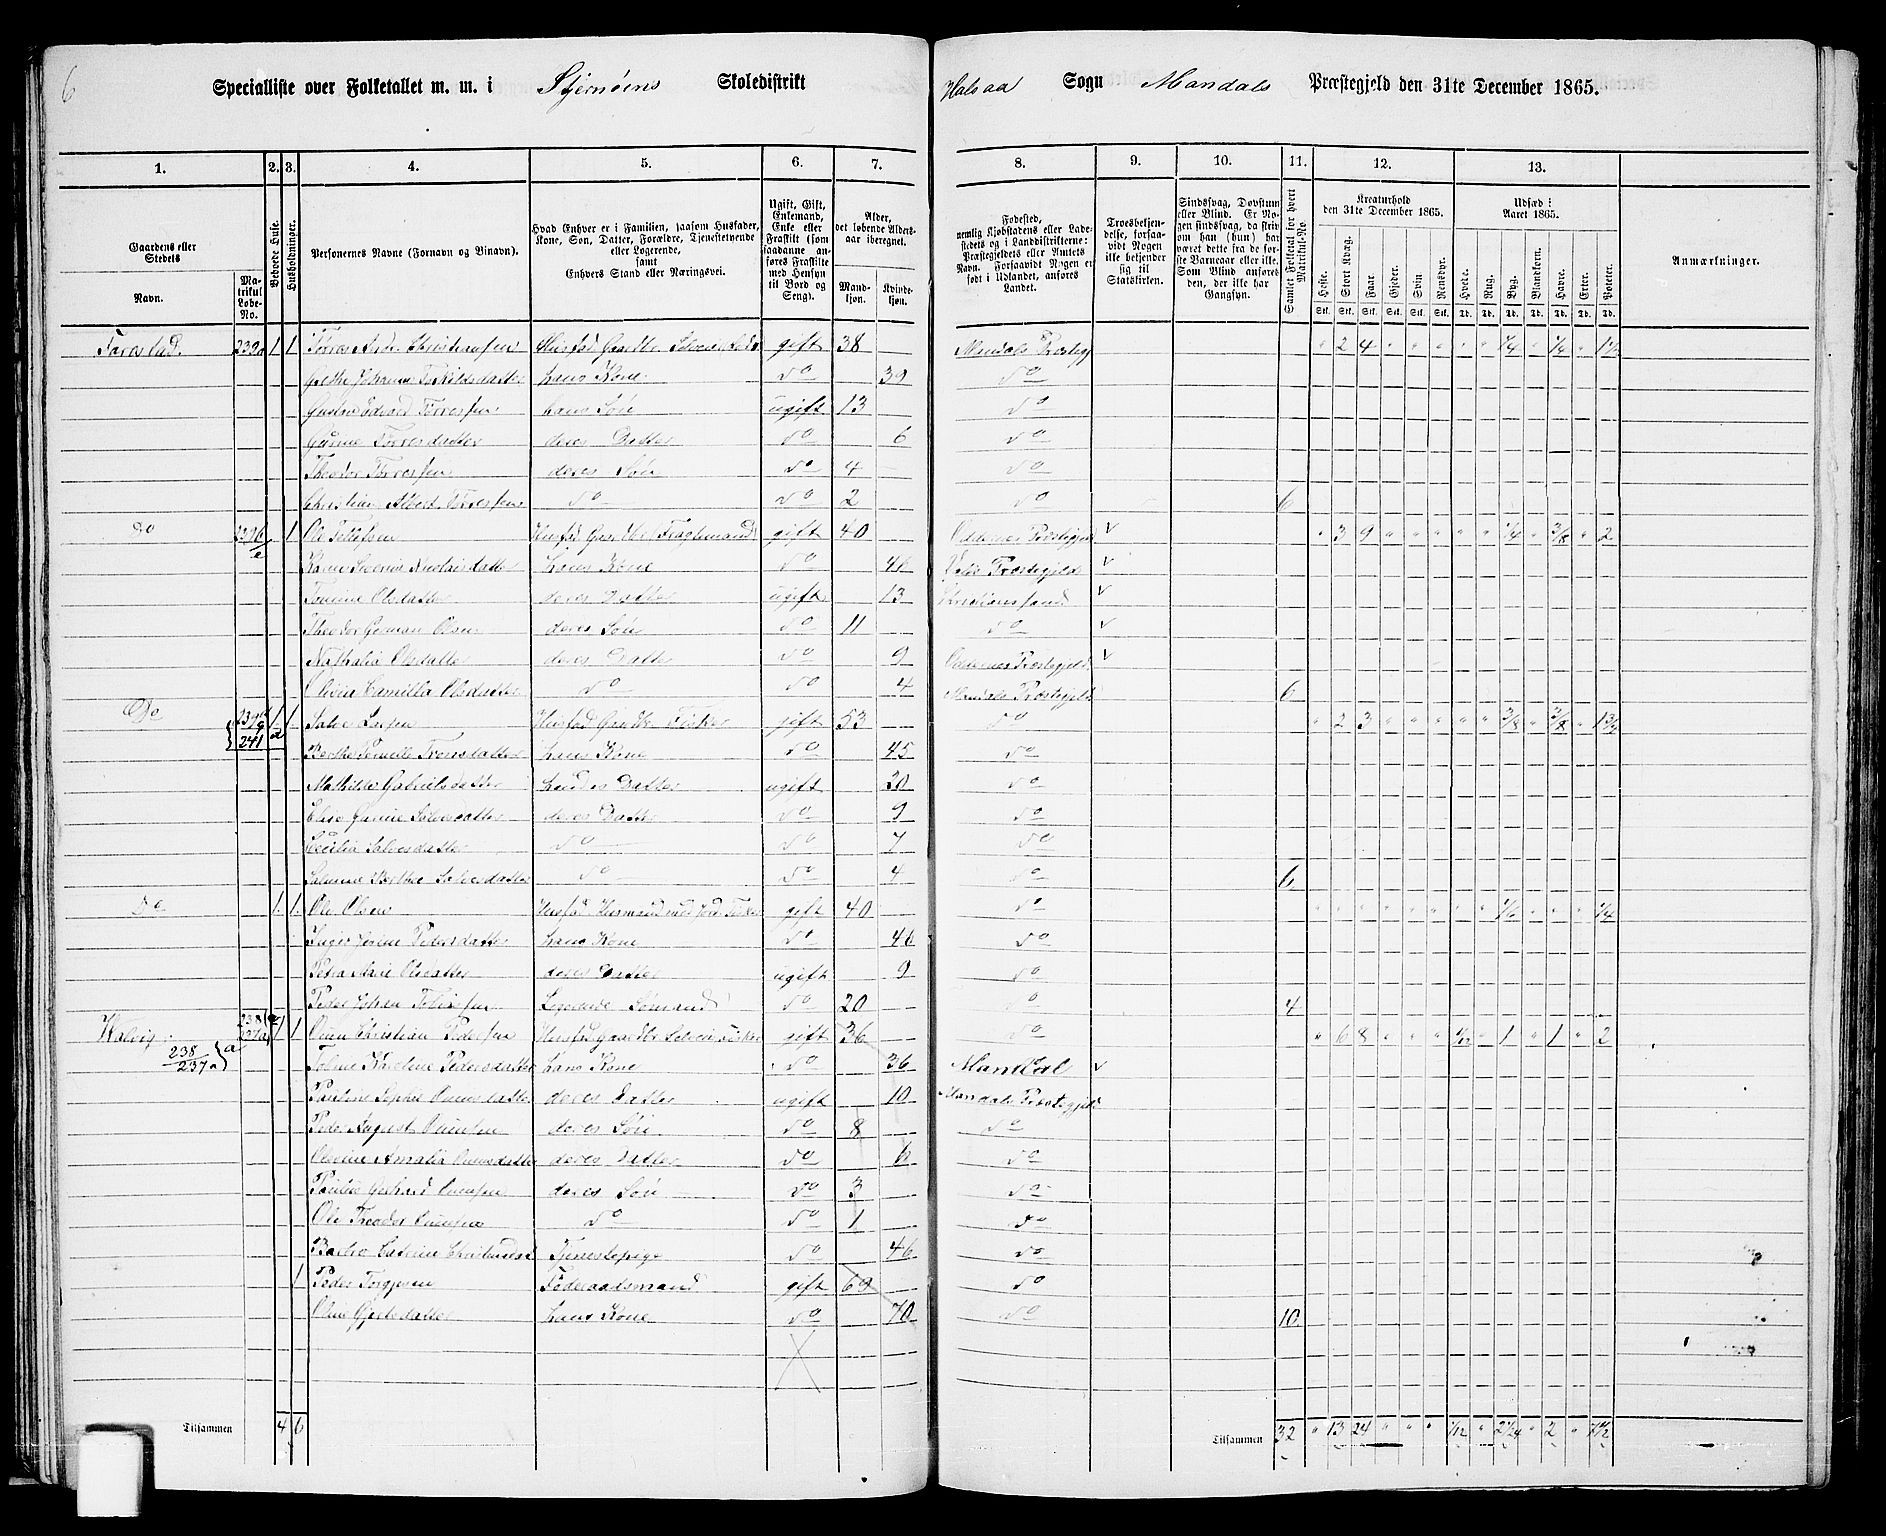 6
Specialliste over Folketallet m. m. i Stjernøens Skoledistrikt Halsaa Sogn Mandals Præstegjeld den 31te December 1865.
1. 2. 3. 4. 5. 6. 7. 8. 9. 10. 11. 12. 13.
Gaardens eller Stedets
Navn.
Matrikul Løbe-No.
Beboede Huse.
Husholdninger.
Personernes Navne (Fornavn og Binavn).
Hvad Enhver er i Familien, saasom Husfader, Kone, Søn, Datter, Forældre, Tjenestetyende eller Logerende, samt Enhvers Stand eller Næringsvei.
Ugift, Gift, Enkemand, Enke eller Fraskilt (som saadanne anføres Fraskilte med Hensyn til Bord og Seng).
Alder, det løbende Aldersaar iberegnet.
Mandkjøn. Kvindekjøn.
Fødested, nemlig Kjøbstadens eller Ladestedets og i Landdistrikterne: Præstegjeldets eller Amtets Navn. Forsaavidt Nogen er født i Udlandet, anføres Landet.
Troesbekjendelse, forsaavidt Nogen ikke bekjender sig til Statskirken.
Sindssvag, Døvstum eller Blind. Er Nogen sindssvag, da skriv om han (hun) har været dette fra de første Barneaar eller ikke. Som Blind anføres den, der ikke har Gangsyn.
Samlet Folketal for hvert Matrikul-No.
Kreaturhold den 31te December 1865.
Heste. Stort Kvæg. Faar. Gjeder. Svin. Rensdyr.
Udsæd i Aaret 1865.
Hvede. Rug. Byg. Blandkorn. Havre. Erter. Poteter.
Stk. Stk. Stk. Stk. Stk. Stk. Td. Td. Td. Td. Td. Td. Td.
Anmærkninger.
Farestad. 239a 1 1 Tørres Andr. Christiansen Husfad Gaardbr Selveier gift 38 Mandals Præsteg " 2 4 " " " " " 1/4 " 1/4 " 1 1/2
Grethe Johanne Terkildsdatter hans Kone do 39 do
Gustav Edvard Tørressen hans Søn ugift 13 do
Gurine Tørresdatter deres Datter do 6 do
Theodor Tørressen deres Søn do 4 do
Christian Albert Tørressen do do 2 do 6
Do 239b/e 1 Ole Tellefsen Husfad Gaardbr Fragtemand gift 40 Oddernes Præstegjeld " 3 9 " " " " " 1/4 " 3/8 " 2
Karen Severine Nicolaisdatter hans Kone do Præstegjeld
Tomine Olsdatter deres Datter ugift 13 Christianssand
Theodor German Olsen deres Søn do 11 do
Nathalia Olsdatter deres Datter do 9 Oddernes Præstegjeld
Olivia Camilla Olsdatter do do 4 Mandals Præstegjeld 6
Do 239d/g 241 a 1 1 Salve Larsen Husfad Gaardbr Fisker gift 53 do " 2 3 " " " " " 3/8 " 3/8 " 1 3/4
Berthe Pernille Tronsdatter hans Kone do 45 do
Mathilde Gabrielsdatter hendes Datter ugift 20 do
Elise Gurine Salvesdatter deres Datter do 9 do
Cecilia Salvesdatter do do 7 do
Salmine Berthe Salvesdatter do do 4 do 6
Do 1 1 Ole Olsen Husfad Husmand med Jord Fisker gift 40 do " " " " " " " " 1/6 " " " 1/4
Inger Serine Pedersdatter hans Kone do 46 do
Petra Marie Olsdatter deres Datter ugift 9 do
Peder Johan Tobiassen Logerende Sømand do 20 do 4
Walvig. 238 237a 1 1 Ouen Christian Pedersen Husfad Gaardbr Selveier Fisker gift 36 do " 6 8 " " " 1/12 " 1 " 1 " 2
238/237a } a Tomine Karoline Pedersdatter hans Kone do 36 Mandal
Pauline Sophie Ouensdatter deres Datter ugift 10 Mandals Præstegjeld
Peder August Ouensen deres Søn do 8 do
Olevine Amalia Ouensdatter deres Datter do 6 do
Paulus Gerhard Ouensen deres Søn do 3 do
Ole Theodor Ouensen do do 1 do
Catrine Christensd Tjenestepige do 46 do
1 Peder Torgjesen Føderaadsmand gift 69 do
Gjertsdatter hans Kone do 70 do 10
Tilsammen 4 6
Tilsammen 32 " 13 24 " " " 1/12 " 2 7/24 " 2 " 7 1/2